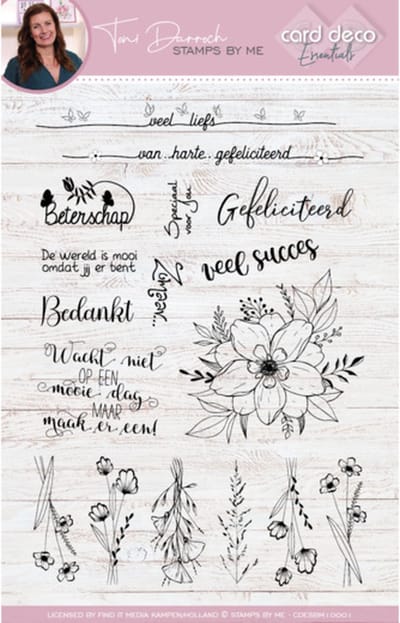 Toni Darroch
STAMPS BY ME
card deco
Essentials
veel liefs
van..harte..gefeliciteerd
Beterschap
Speciaal
voor jou
Gefeliciteerd
De wereld is mooi
omdat jij er bent
veel succes
Bedankt
Wacht niet
OP EEN
mooie dag
MAAR
maak er een!
LICENSED BY FIND IT MEDIA KAMPEN/HOLLAND © STAMPS BY ME - CDESBM10001